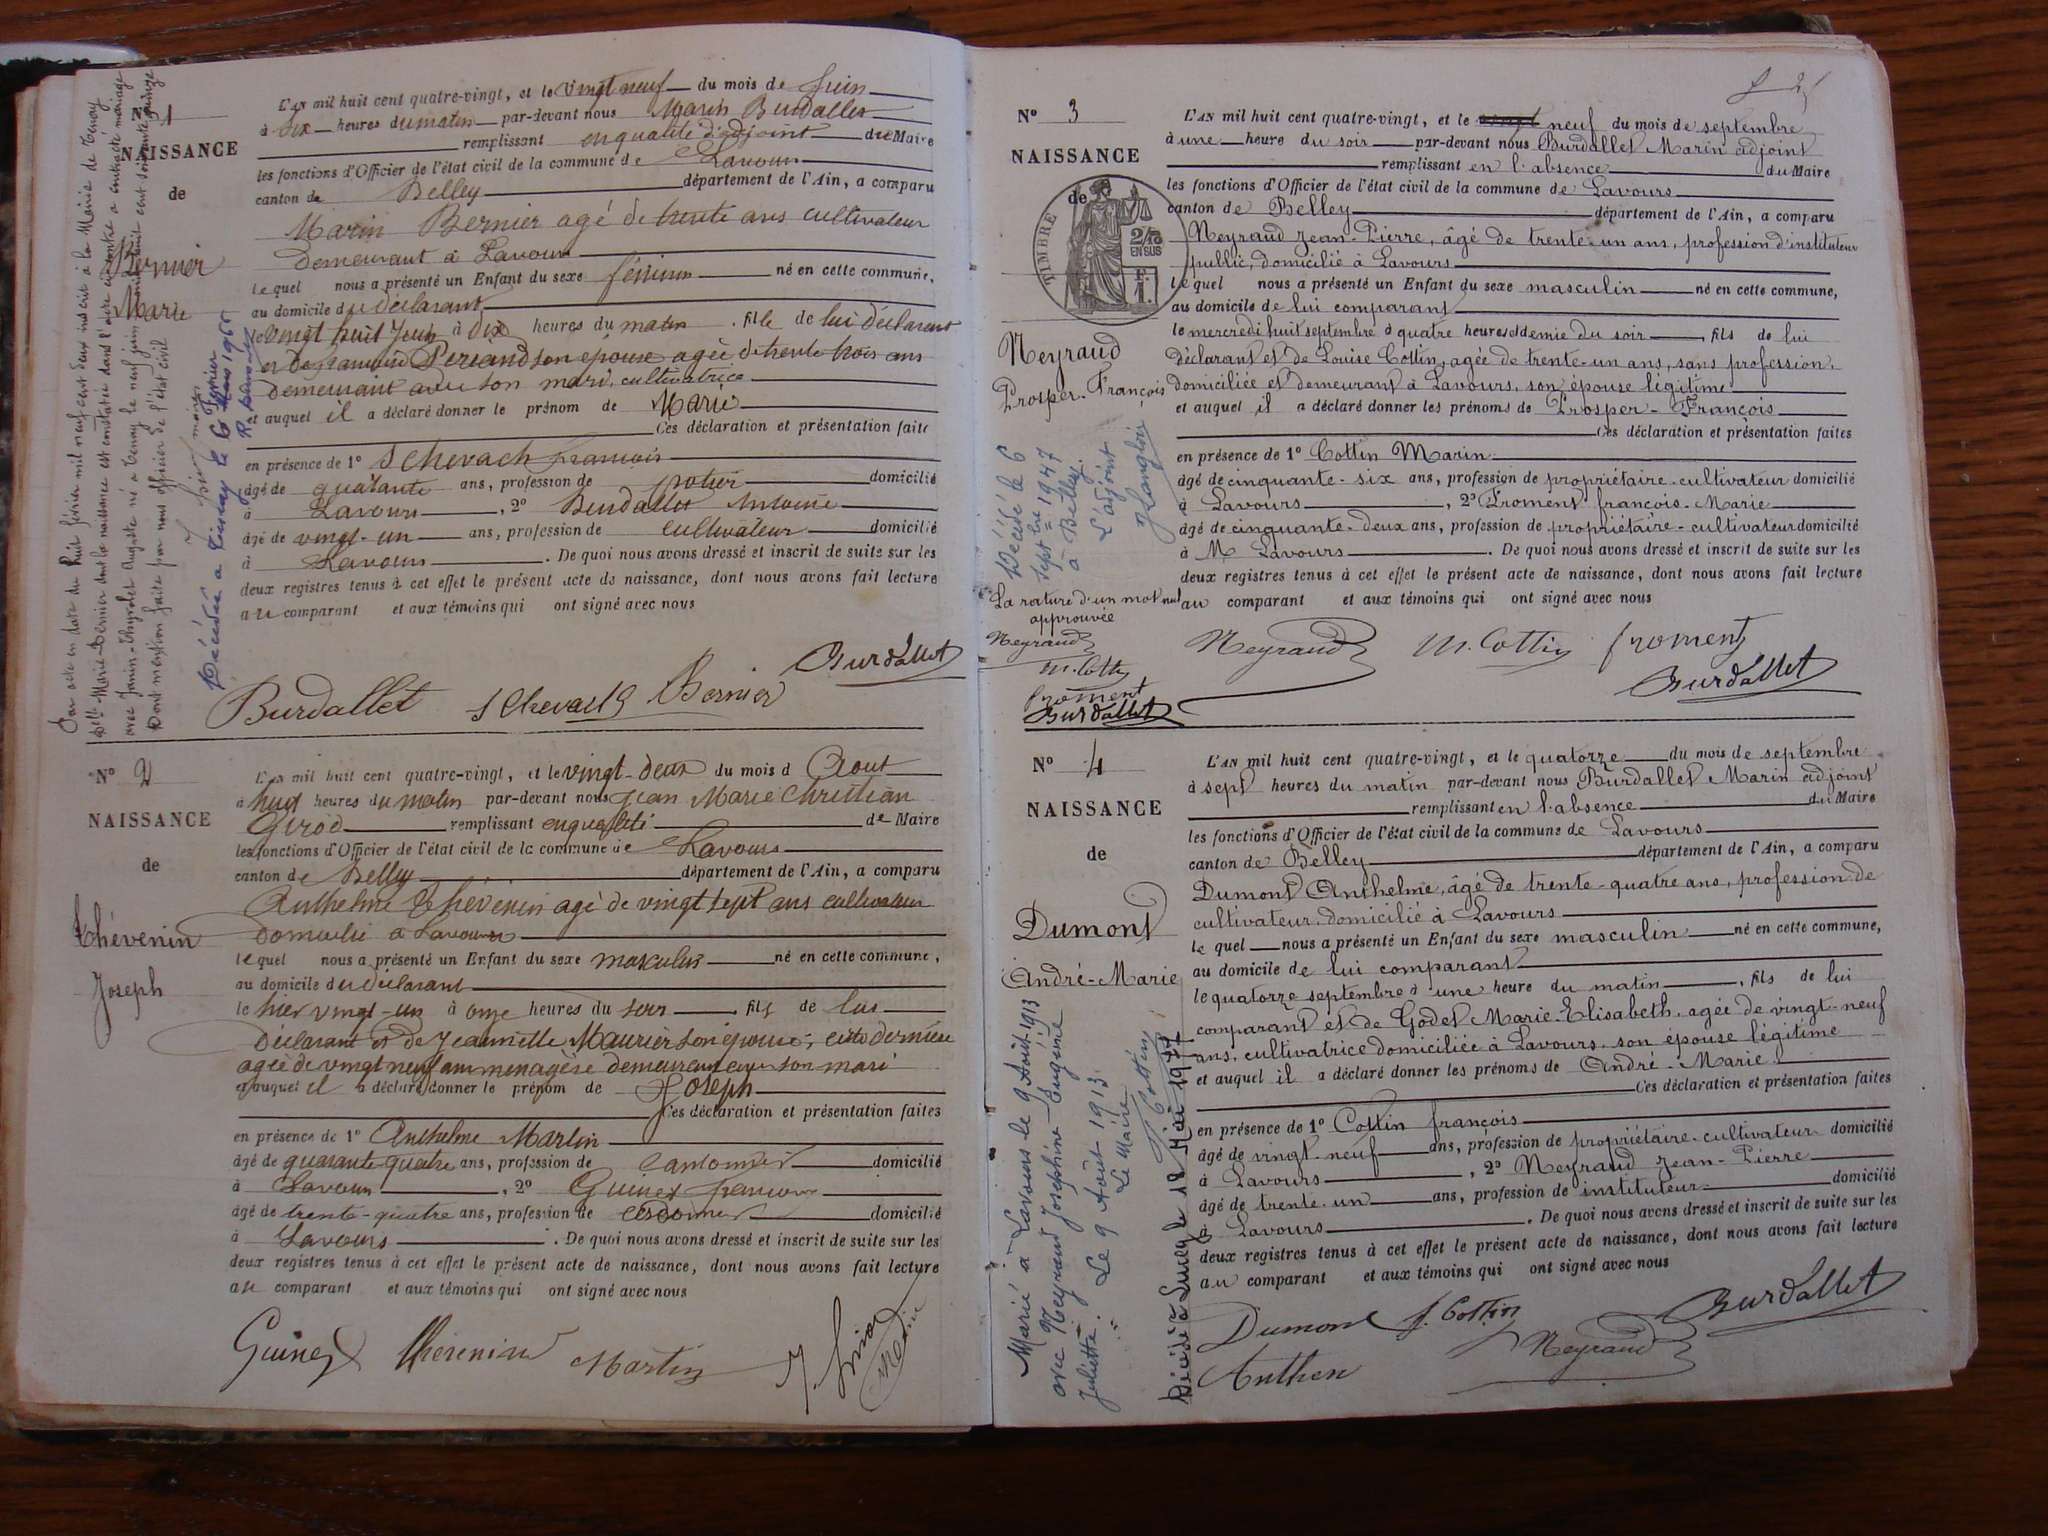 N° 1
NAISSANCE
de
Bernier
Marie
L'AN mil huit cent quatre-vingt, et le vingt neuf du mois de Juin
à six heures du matin par-devant nous Marin Burdallet
remplissant en qualité d'adjoint du Maire
les fonctions d'Officier de l'état civil de la commune de Lavours
canton de Belley département de l'Ain, a comparu
Marin Bernier agé de trente ans cultivateur
demeurant à Lavours
lequel nous a présenté un Enfant du sexe féminin né en cette commune,
au domicile du déclarant
le vingt huit Juin à dix heures du matin, fille de lui déclarant
et de Peysson son épouse agée de trente trois ans
demeurant avec son mari, cultivatrice
et auquel il a déclaré donner le prénom de Marie
Ces déclaration et présentation faites
en présence de 1° Schevach françois
âgé de quarante ans, profession de potier domicilié
à Lavours, 2° Burdallet Antoine
âgé de vingt-un ans, profession de cultivateur domicilié
à Lavours. De quoi nous avons dressé et inscrit de suite sur les
deux registres tenus à cet effet le présent acte de naissance, dont nous avons fait lecture
au comparant et aux témoins qui ont signé avec nous
Burdallet Bernier Burdallet
Par acte en date du huit février mil neuf cent deux inscrit à la Mairie de Tenay
Delle Marie Bernier dont la naissance est constatée dans l'acte ci-contre a contracté mariage
avec Janin-Thyvolet Auguste né à Tenay le neuf juin mil huit cent soixante quinze
Dont mention faite par nous officier de l'état civil
Décédée à Tenay le 6 Février 1966
N° 2
NAISSANCE
de
Thévenin
Joseph
L'AN mil huit cent quatre-vingt, et le vingt-deux du mois d Aout
à huit heures du matin par-devant nous Jean Marie Christian
Girod remplissant en qualité de Maire
les fonctions d'Officier de l'état civil de la commune de Lavours
canton de Belley département de l'Ain, a comparu
Anthelme Thévenin agé de vingt sept ans cultivateur
domicilié à Lavours
lequel nous a présenté un Enfant du sexe masculin né en cette commune,
au domicile du déclarant
le hier vingt-un à onze heures du soir, fils de lui
déclarant et de Jeannette Maurier son épouse; cette dernière
agée de vingt neuf ans menagère demeurant avec son mari
et auquel il a déclaré donner le prénom de Joseph
Ces déclaration et présentation faites
en présence de 1° Anthelme Martin
âgé de quarante-quatre ans, profession de cantonnier domicilié
à Lavours, 2° Guinet françois
âgé de trente-quatre ans, profession de domicilié
à Lavours. De quoi nous avons dressé et inscrit de suite sur les
deux registres tenus à cet effet le présent acte de naissance, dont nous avons fait lecture
au comparant et aux témoins qui ont signé avec nous
Guinet Thévenin Martin Girod Maire
N° 3
NAISSANCE
de
TIMBRE
2/10
EN SUS
Neyraud
Prosper-François
L'AN mil huit cent quatre-vingt, et le vingt neuf du mois de septembre
à une heure du soir par-devant nous Burdallet Marin adjoint
remplissant en l'absence du Maire
les fonctions d'Officier de l'état civil de la commune de Lavours
canton de Belley département de l'Ain, a comparu
Neyraud Jean-Pierre, âgé de trente-un ans, profession d'instituteur
public, domicilié à Lavours
lequel nous a présenté un Enfant du sexe masculin né en cette commune,
au domicile de lui comparant
le mercredi huit septembre à quatre heures et demie du soir, fils de lui
déclarant et de Louise Cottin, agée de trente-un ans, sans profession,
domiciliée et demeurant à Lavours, son épouse légitime
et auquel il a déclaré donner les prénoms de Prosper-François
Ces déclaration et présentation faites
en présence de 1° Cottin Marin
âgé de cinquante-six ans, profession de propriétaire-cultivateur domicilié
à Lavours, 2° Froment françois-Marie
âgé de cinquante-deux ans, profession de propriétaire-cultivateur domicilié
à Lavours. De quoi nous avons dressé et inscrit de suite sur les
deux registres tenus à cet effet le présent acte de naissance, dont nous avons fait lecture
au comparant et aux témoins qui ont signé avec nous
Neyraud M. Cottin froment
Burdallet
Décédé le 6
septbre 1947
à Belley.
L'adjoint
La rature d'un mot nul
approuvée
Neyraud
M. Cottin
froment
Burdallet
N° 4
NAISSANCE
de
Dumont
André-Marie
L'AN mil huit cent quatre-vingt, et le quatorze du mois de septembre
à sept heures du matin par-devant nous Burdallet Marin adjoint
remplissant en l'absence du Maire
les fonctions d'Officier de l'état civil de la commune de Lavours
canton de Belley département de l'Ain, a comparu
Dumont Anthelme, âgé de trente-quatre ans, profession de
cultivateur, domicilié à Lavours
lequel nous a présenté un Enfant du sexe masculin né en cette commune,
au domicile de lui comparant
le quatorze septembre à une heure du matin, fils de lui
comparant et de Godet Marie-Elisabeth, agée de vingt-neuf
ans, cultivatrice domiciliée à Lavours, son épouse légitime
et auquel il a déclaré donner les prénoms de André-Marie
Ces déclaration et présentation faites
en présence de 1° Cottin françois
âgé de vingt-neuf ans, profession de propriétaire-cultivateur domicilié
à Lavours, 2° Neyraud Jean-Pierre
âgé de trente-un ans, profession de instituteur domicilié
à Lavours. De quoi nous avons dressé et inscrit de suite sur les
deux registres tenus à cet effet le présent acte de naissance, dont nous avons fait lecture
au comparant et aux témoins qui ont signé avec nous
Dumont f. Cottin Burdallet
Anthen Neyraud
Marié à Lavours le 9 Août 1913
avec Neyraud Joséphine-Eugénie
Juliette. Le 9 Août 1913.
Le Maire
Cottin
Mai 1947